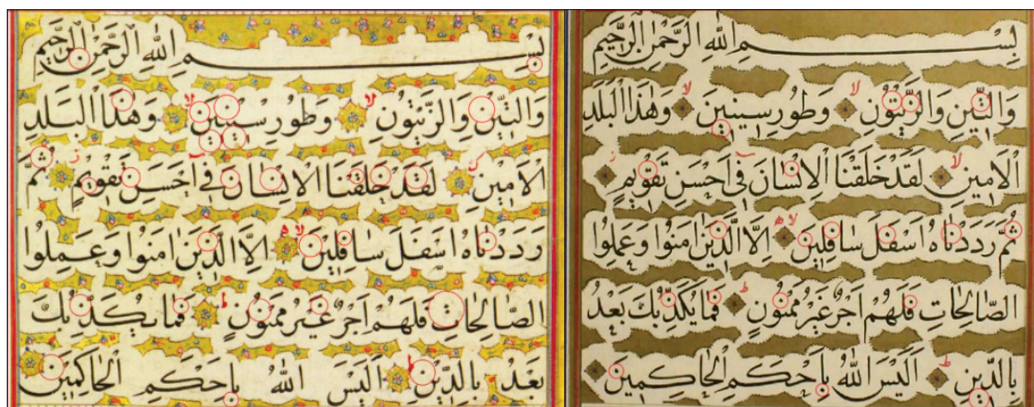 بِسْمِ اللهِ الرَّحْمٰنِ الرَّحِيمِ
وَالتِّينِ وَالزَّيْتُونِ ۙ وَطُورِ سِينِينَ ۙ وَهٰذَا الْبَلَدِ
الْاَمِينِ ۙ لَقَدْ خَلَقْنَا الْاِنْسَانَ فِٓي اَحْسَنِ تَقْوِيمٍ
ثُمَّ رَدَدْنَاهُ اَسْفَلَ سَافِلِينَ ۙ اِلَّا الَّذِينَ اٰمَنُوا وَعَمِلُوا
الصَّالِحَاتِ فَلَهُمْ اَجْرٌ غَيْرُ مَمْنُونٍ ط فَمَا يُكَذِّبُكَ بَعْدُ
بِالدِّينِ ط اَلَيْسَ اللهُ بِاَحْكَمِ الْحَاكِمِينَ
بِسْمِ اللهِ الرَّحْمٰنِ الرَّحِيمِ
وَالتِّينِ وَالزَّيْتُونِ ۙ وَطُورِ سِينِينَ ۙ وَهٰذَا الْبَلَدِ
الْاَمِينِ لَقَدْ خَلَقْنَا الْاِنْسَانَ فِٓي اَحْسَنِ تَقْوِيمٍ ثُمَّ
رَدَدْنَاهُ اَسْفَلَ سَافِلِينَ ۙ اِلَّا الَّذِينَ اٰمَنُوا وَعَمِلُوا
الصَّالِحَاتِ فَلَهُمْ اَجْرٌ غَيْرُ مَمْنُونٍ ط فَمَا يُكَذِّبُكَ
بَعْدُ بِالدِّينِ ط اَلَيْسَ اللهُ بِاَحْكَمِ الْحَاكِمِينَ